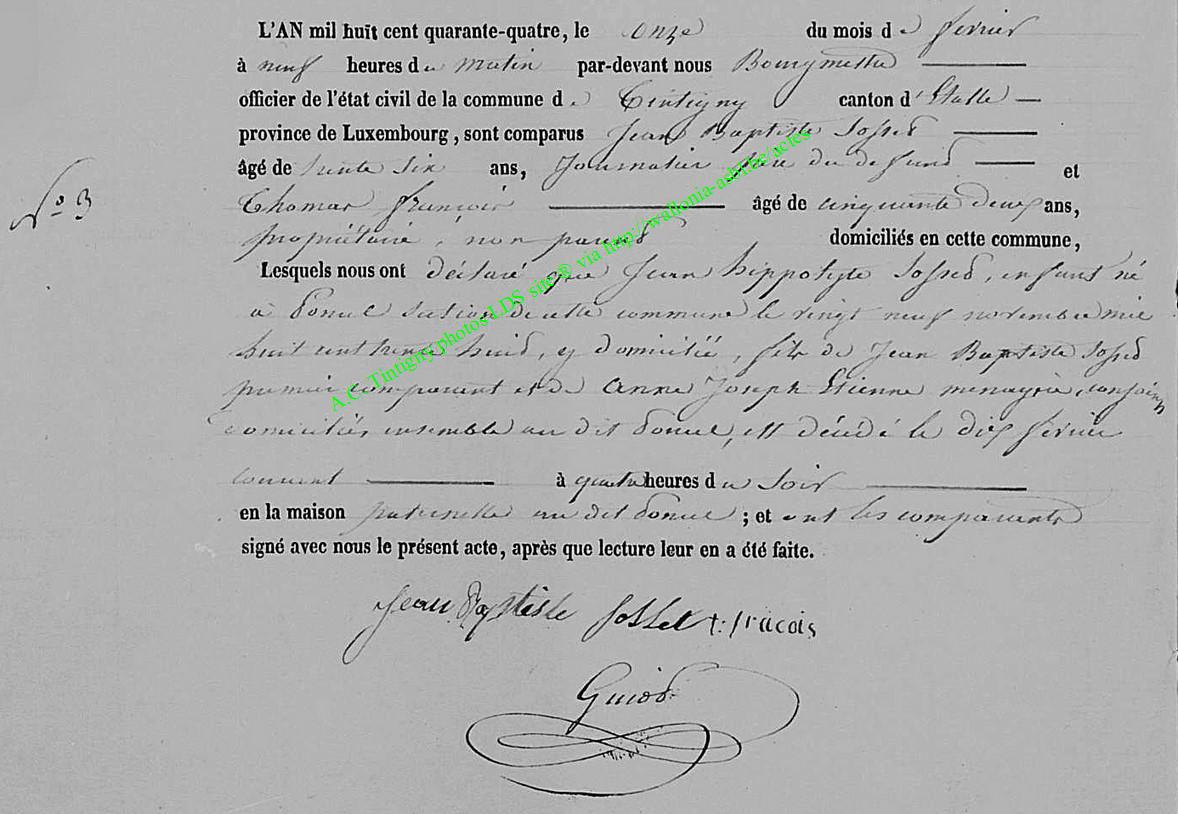 L'AN mil huit cent quarante-quatre, le onze du mois de février
à neuf heures du matin par-devant nous Bourgmestre
officier de l'état civil de la commune de Tintigny canton d'Etalle
province de Luxembourg, sont comparus Jean Baptiste Josset
âgé de trente six ans, Journalier père du défunt et
N.o 3
Thomas François âgé de cinquante deux ans,
propriétaire, non parent domiciliés en cette commune,
Lesquels nous ont déclaré que Jean hippolyte Josset, enfant né
à section de cette commune le vingt neuf novembre mil
huit cent trente huit, y domicilié, fils de Jean Baptiste Josset
premier comparant et de Anne Joseph Etienne menagère, conjoints
domiciliés ensemble au dit est décédé le dix février
courant à quatre heures du soir
en la maison paternelle au dit ; et ont les comparants
signé avec nous le présent acte, après que lecture leur en a été faite.
Jean Baptiste Josset t: fracois
A.C. Tintigny photos LDS site® via http://wallonia-asbl.be/actes